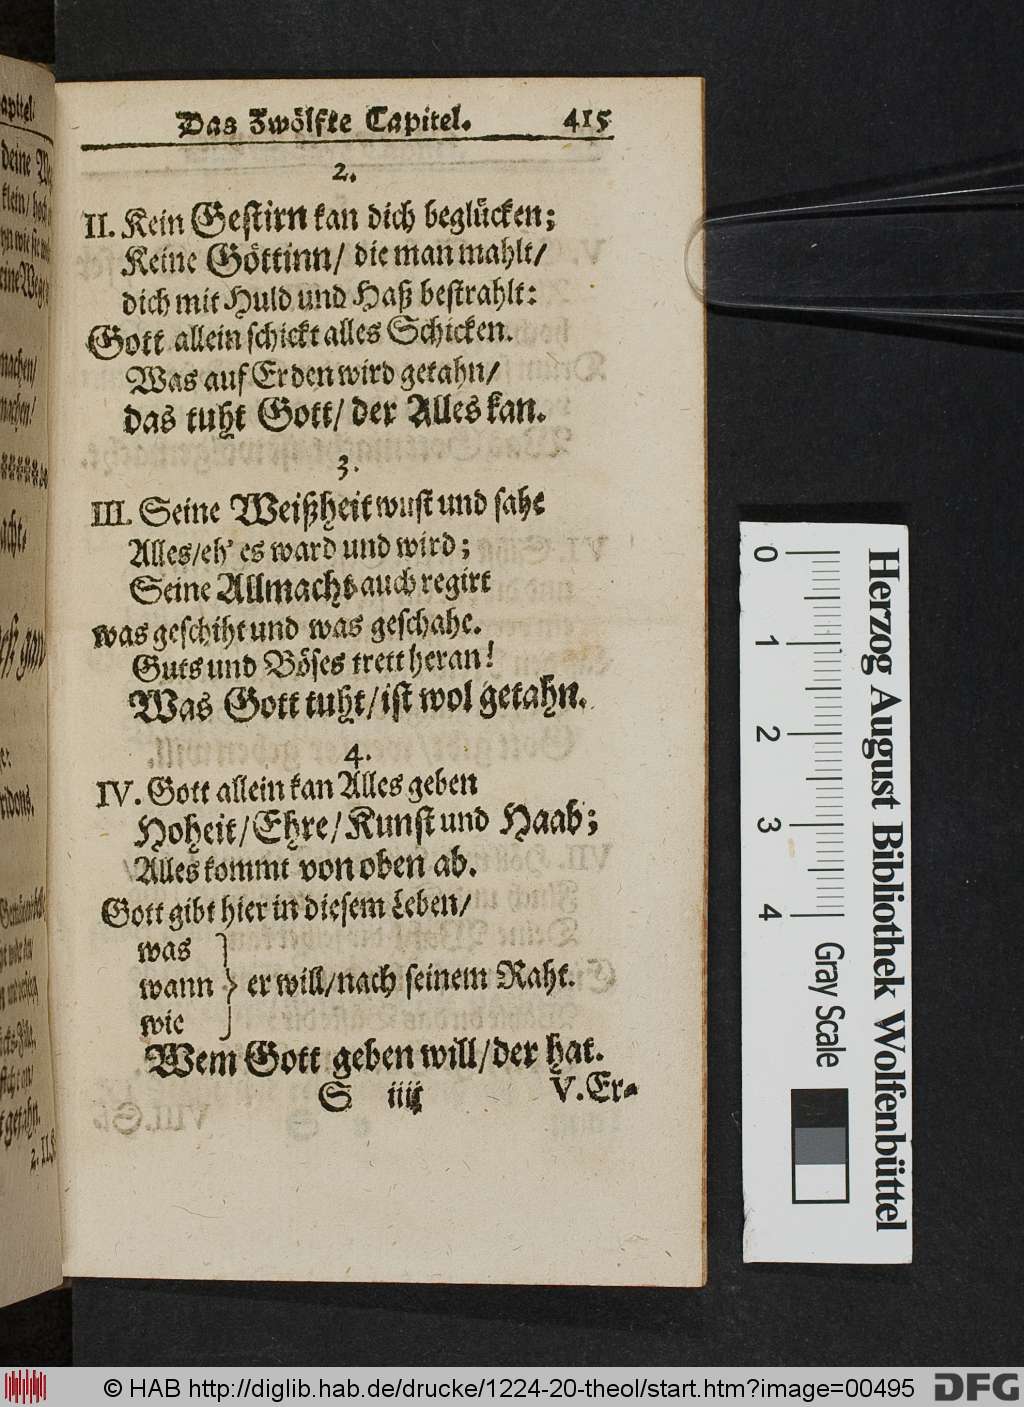 Das Zwölfte Capitel. 415
2.
II. Kein Gestirn kan dich beglücken;
Keine Göttinn/ die man mahlt/
dich mit Huld und Haß bestrahlt:
Gott allein schickt alles Schicken.
Was auf Erden wird getahn/
das tuht Gott/ der Alles kan.
3.
III. Seine Weißheit wust und sahe
Alles/eh' es ward und wird;
Seine Allmacht auch regirt
was geschiht und was geschahe.
Guts und Böses trett heran!
Was Gott tuht/ist wol getahn.
4.
IV. Gott allein kan Alles geben
Hoheit/Ehre/Kunst und Haab;
Alles kommt von oben ab.
Gott gibt hier in diesem Leben/
was
wann } er will/nach seinem Raht.
wie
Wem Gott geben will/der hat.
S iiij V.Er-
0
1
2
3
4
Gray Scale
Herzog August Bibliothek Wolfenbüttel
© HAB http://diglib.hab.de/drucke/1224-20-theol/start.htm?image=00495
DFG